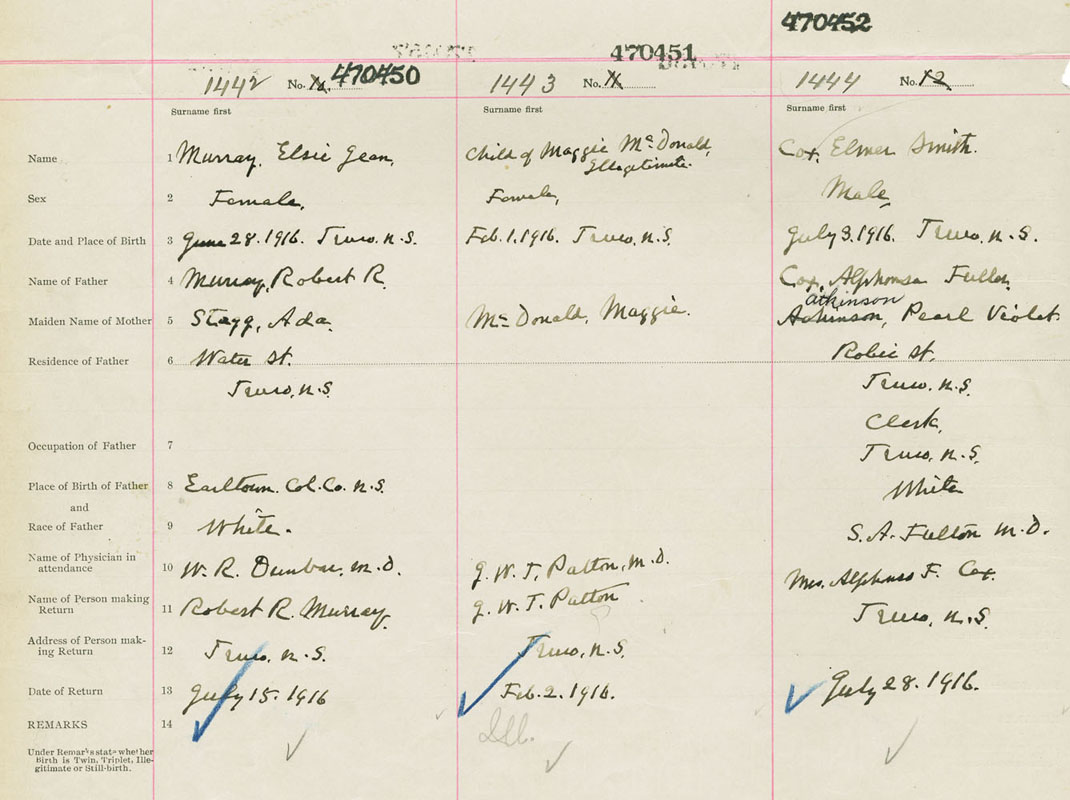 470452
470451
1442 No. 470450
1443 No. 11
1444 No. 12
Surname first
Surname first
Surname first
Name 1 Murray, Elsie Jean,
Child of Maggie McDonald,
Illegitimate.
Cox, Elmer Smith.
Sex 2 Female,
Female,
Male,
Date and Place of Birth 3 June 28. 1916. Truro. N.S.
Feb. 1. 1916. Truro, N.S.
July 3. 1916. Truro, N.S.
Name of Father 4 Murray, Robert R.
Cox, Alphonso Fulton,
atkinson
Maiden Name of Mother 5 Stagg, Ada.
McDonald, Maggie.
Pearl Violet.
Residence of Father 6 Water St.
Truro, N.S.
Robie St,
Truro, N.S.
Clerk,
Occupation of Father 7
Truro, N.S.
Place of Birth of Father 8 Earltown. Col. Co. N.S.
White
and
Race of Father 9 White.
S. A. Fulton M.D.
Name of Physician in
attendance 10 W. R. Dunbar, M.D.
J. W. T. Patton, M.D.
Mrs. Alphonso F. Cox.
Name of Person making
Return 11 Robert R. Murray,
J. W. T. Patton
Truro, N.S.
Address of Person mak-
ing Return 12 Truro, N.S.
Truro, N.S.
Date of Return 13 July 15. 1916
Feb. 2. 1916.
July 28. 1916.
REMARKS 14
Ill.
Under Remarks state whether
Birth is Twin, Triplet, Ille-
gitimate or Still-birth.